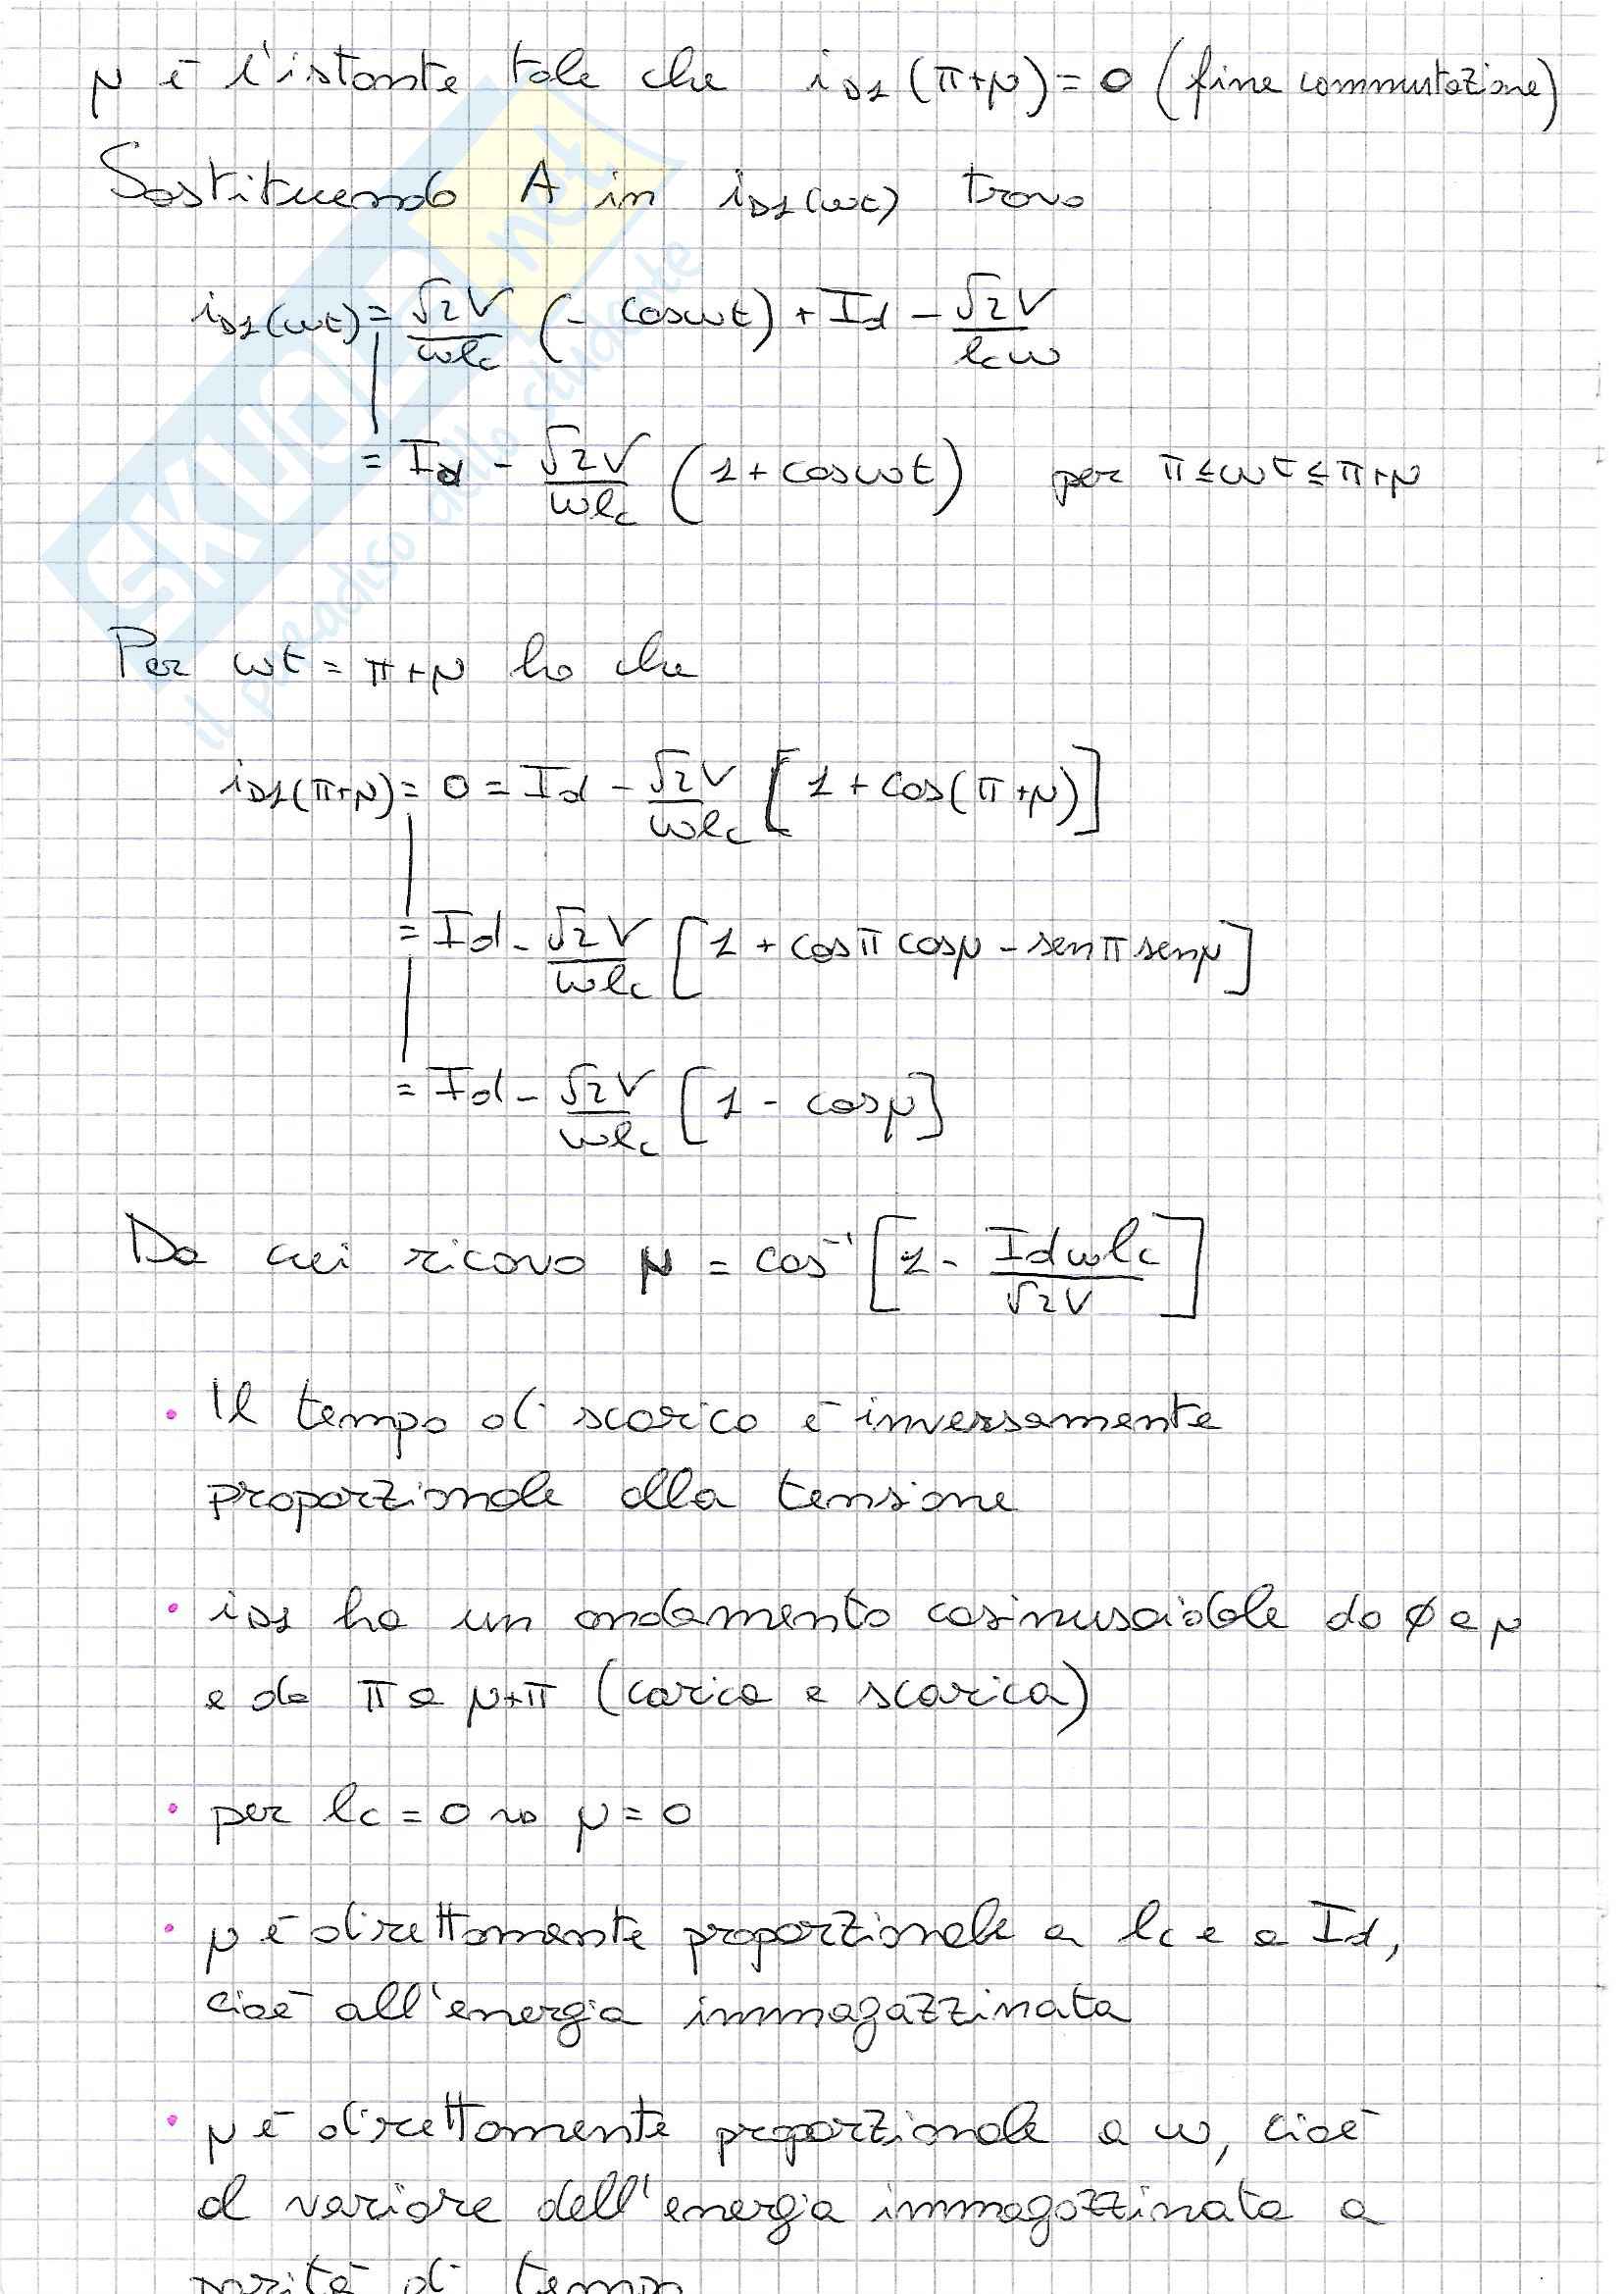 μ è l'istante tale che iD1(π+μ)=0 (fine commutazione)
Sostituendo A in iD1(ωt) trovo
iD1(ωt) = √2V/ωlc (- cosωt) + Id - √2V/lcω
= Id - √2V/ωlc (1 + cosωt) per π≤ωt≤π+μ
Per ωt = π+μ ho che
iD1(π+μ) = 0 = Id - √2V/ωlc [1 + cos(π+μ)]
= Id - √2V/ωlc [1 + cosπ cosμ - senπ senμ]
= Id - √2V/ωlc [1 - cosμ]
Da cui ricavo μ = cos⁻¹ [1 - Idωlc/√2V]
• Il tempo di scarica è inversamente
proporzionale alla tensione
• iD1 ha un andamento cosinusoidale da 0 a μ
e da π a μ+π (carica e scarica)
• per lc = 0 → μ = 0
• μ è direttamente proporzionale a lc e a Id,
cioè all'energia immagazzinata
• μ è direttamente proporzionale a ω, cioè
al variare dell'energia immagazzinata a
parità di tempo
SKUOLA.net
il paradiso dello studente